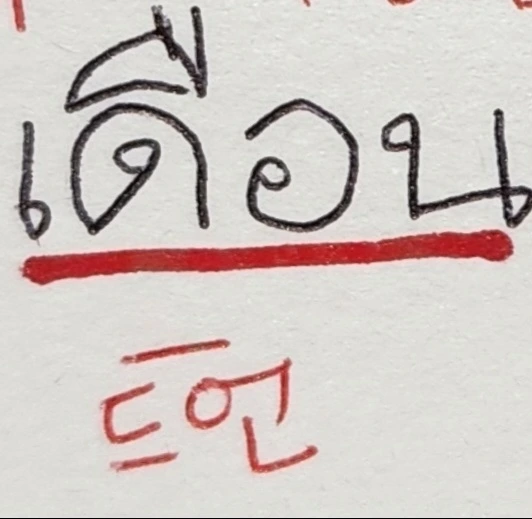 เดือน
드언